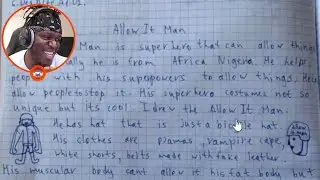 Allow It Man
Man is superhero that can allow things
ally he is from Africa Nigera. He helps
peop with his supapowers to allow things, He
allow people to stop it. His superhero costums not so
unique but its cool. I drew the Allow It Man.
He has hat that is just a bicycle hat.
His clothes are pjamas, vampire cape,
white shorts, belts made with fake leather.
His muscular body cant allow it his fat body but